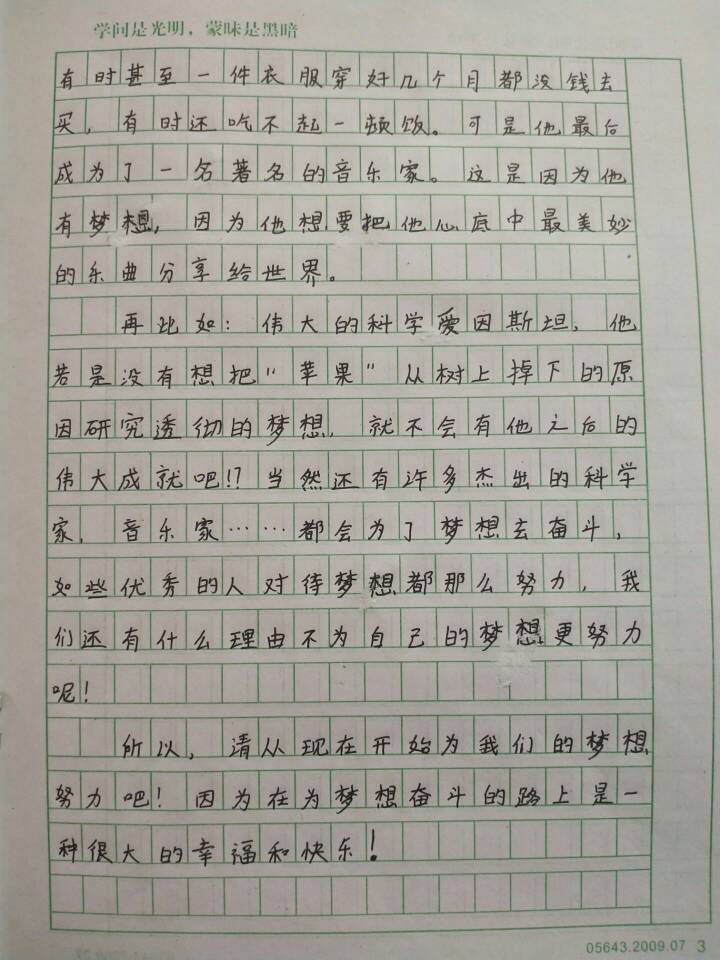 学问是光明，蒙昧是黑暗
有时甚至一件衣服穿好几个月都没钱去
买，有时还吃不起一顿饭。可是他最后
成为了一名著名的音乐家。这是因为他
有梦想，因为他想要把他心底中最美妙
的乐曲分享给世界。
再比如：伟大的科学爱因斯坦，他
若是没有想把“苹果”从树上掉下的原
因研究透彻的梦想，就不会有他之后的
伟大成就吧!？当然还有许多杰出的科学
家，音乐家……都会为了梦想去奋斗，
如些优秀的人对待梦想都那么努力，我
们还有什么理由不为自己的梦想更努力
呢！
所以，请从现在开始为我们的梦想
努力吧！因为在为梦想奋斗的路上是一
种很大的幸福和快乐！
05643.2009.07 3